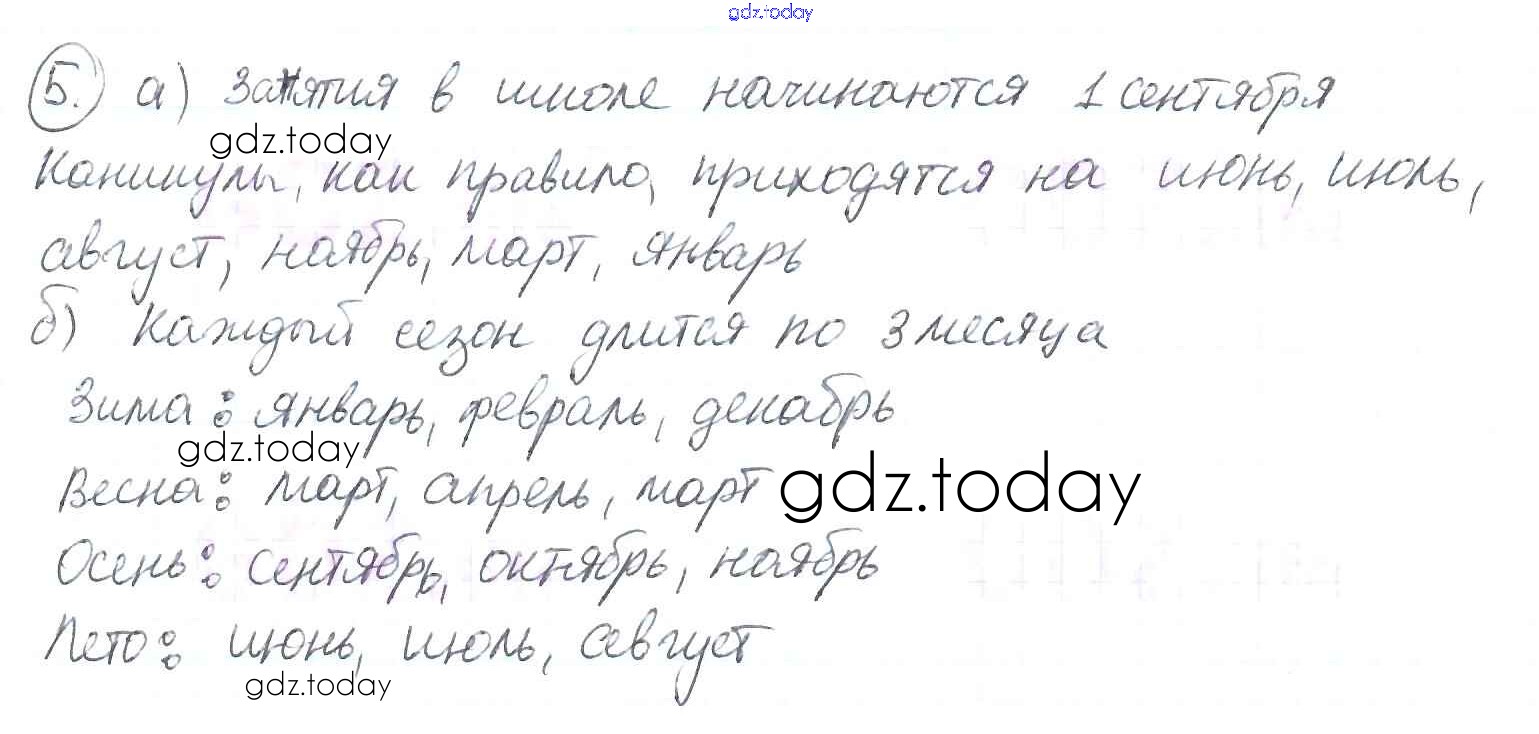 gdz.today
5. а) Занятия в школе начинаются 1 сентября
gdz.today
Каникулы, как правило, приходятся на июнь, июль,
август, ноябрь, март, январь
б) Каждый сезон длится по 3 месяца
Зима: январь, февраль, декабрь
gdz.today
Весна: март, апрель, март
gdz.today
Осень: сентябрь, октябрь, ноябрь
Лето: июнь, июль, севгуст
gdz.today